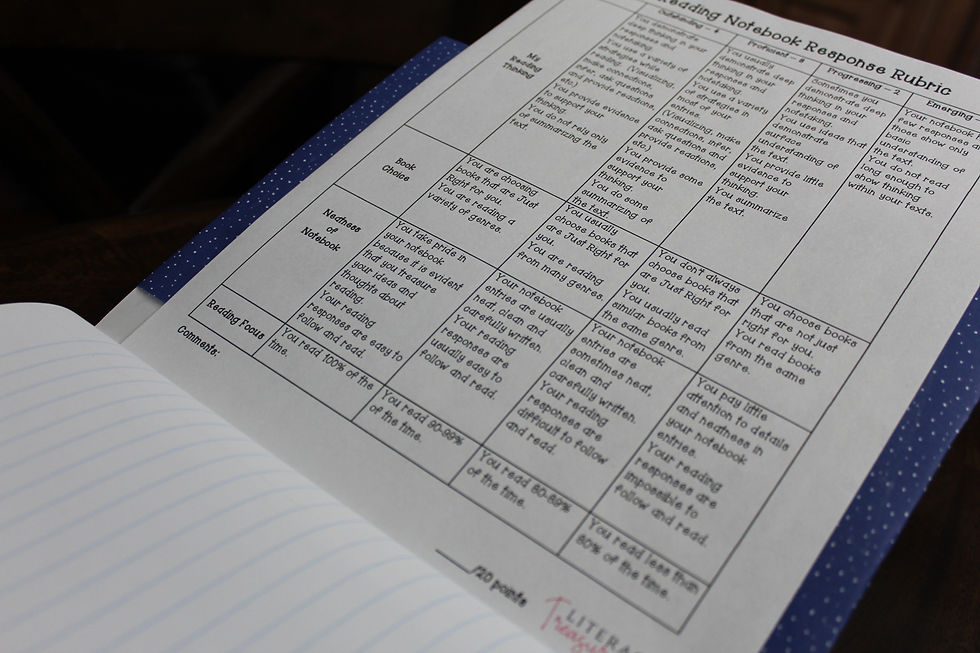 Reading Notebook Response Rubric
Outstanding - 4
Proficient - 3
Progressing - 2
Emerging
My
Reading
Thinking
You demonstrate
deep thinking in your
responses and
notetaking.
You use a variety of
strategies while
reading. (Visualizing,
make connections,
infer, ask questions
and provide reactions,
etc.)
You provide evidence
to support your
thinking.
You do not rely only
of summarizing the
text.
You usually
demonstrate deep
thinking in your
responses and
notetaking.
You use a variety
of strategies in
most of your
entries.
(Visualizing, make
connections, infer,
ask questions and
provide reactions
etc.)
You provide some
evidence to
support your
thinking.
You do some
summarizing of
the text.
Sometimes you
demonstrate deep
thinking in your
responses and
notetaking.
You use ideas that
demonstrate
surface
understanding of
the text.
You provide little
evidence to
support your
thinking.
You summarize
the text.
Your notebook
few responses
those show only
basic
understanding of
the text.
You do not read
long enough to
show thinking
within your texts.
Book
Choice
You are choosing
books that are Just
Right for you.
You are reading a
variety of genres.
You usually
choose books that
are Just Right for
you.
You are reading
from many genres.
You don't always
choose books that
are Just Right for
you.
You usually read
similar books from
the same genre.
You choose books
that are not just
right for you.
You read books
from the same
genre.
Neatness
of
Notebook
You take pride in
your notebook
because it is evident
that you treasure
your ideas and
thoughts about
reading.
Your reading
responses are easy to
follow and read.
Your notebook
entries are usually
neat, clean and
carefully written.
Your reading
responses are
usually easy to
follow and read.
Your notebook
entries are
sometimes neat,
clean and
carefully written.
Your reading
responses are
difficult to follow
and read.
You pay little
attention to details
and neatness in
your notebook
entries.
Your reading
responses are
impossible to
follow and read.
Reading Focus
You read 100% of the
time.
You read 90-99%
of the time.
You read 80-89%
of the time.
You read less than
80% of the time.
Comments:
/20 points